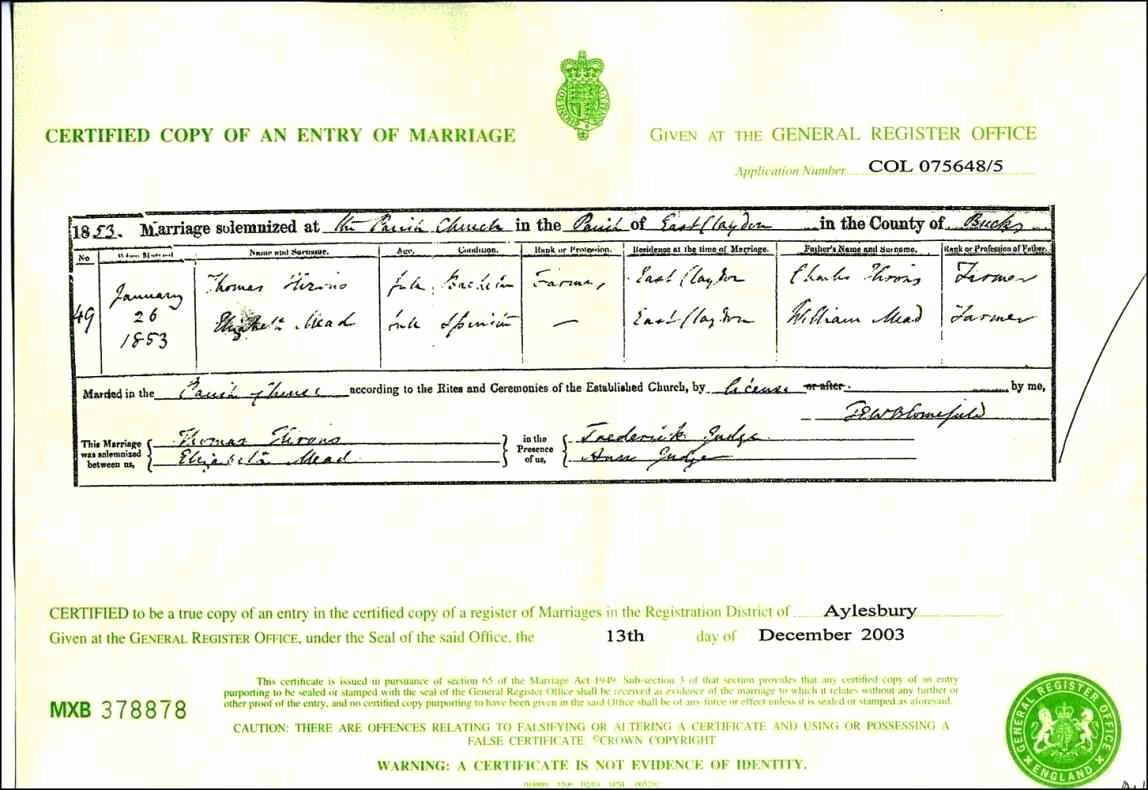 CERTIFIED COPY OF AN ENTRY OF MARRIAGE
GIVEN AT THE GENERAL REGISTER OFFICE
Application Number COL 075648/5
1853. Marriage solemnized at the Parish Church in the Parish of East Claydon in the County of Bucks
No When Married Name and Surname. Age. Condition. Rank or Profession. Residence at the time of Marriage. Father's Name and Surname. Rank or Profession of Father.
49 January 26 1853
Thomas Hirons full Bachelor Farmer East Claydon Charles Hirons Farmer
Elizabeth Mead full Spinster — East Claydon William Mead Farmer
Married in the Parish Church according to the Rites and Ceremonies of the Established Church, by License or after by me,
This Marriage was solemnized between us, Thomas Hirons Elizabeth Mead
in the Presence of us, Frederick Judge Ann Judge
CERTIFIED to be a true copy of an entry in the certified copy of a register of Marriages in the Registration District of Aylesbury
Given at the GENERAL REGISTER OFFICE, under the Seal of the said Office, the 13th day of December 2003
This certificate is issued in pursuance of section 65 of the Marriage Act 1949. Sub-section 3 of that section provides that any certified copy of an entry
purporting to be sealed or stamped with the seal of the General Register Office shall be received as evidence of the marriage to which it relates without any further or
other proof of the entry, and no certified copy purporting to have been given in the said Office shall be of any force or effect unless it is sealed or stamped as aforesaid.
MXB 378878
CAUTION: THERE ARE OFFENCES RELATING TO FALSIFYING OR ALTERING A CERTIFICATE AND USING OR POSSESSING A
FALSE CERTIFICATE. ©CROWN COPYRIGHT
WARNING: A CERTIFICATE IS NOT EVIDENCE OF IDENTITY.
GENERAL REGISTER OFFICE
ENGLAND